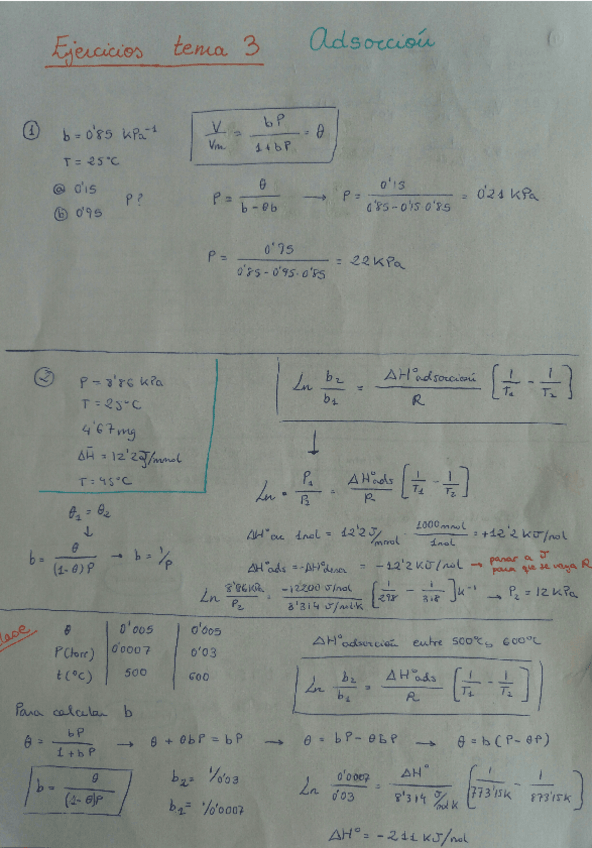 Ejercicios tema 3 Adsorción
① b = 0'85 KPa⁻¹
T = 25°C
ⓐ 0'15 P?
ⓑ 0'95
V/Vm = bP/(1+bP) = θ
P = θ/(b-θb) → P = 0'15/(0'85-0'15·0'85) = 0'21 KPa
P = 0'95/(0'85-0'95·0'85) = 22 KPa
② P = 8'86 KPa
T = 25°C
4'67 mg
ΔH̄ = 12'2 J/mmol
T = 45°C
Ln b₂/b₁ = ΔH°adsorcioni/R [1/T₁ - 1/T₂]
↓
θ₁ = θ₂
↓
b = θ/((1-θ)P) → b = 1/P
Ln = P₁/P₂ = ΔH°ads/R [1/T₁ - 1/T₂]
1mol = 12'2 J/mmol · 1000mmol/1mol = +12'2 KJ/mol
ΔH°ads = -ΔH°desor = -12'2 KJ/mol → pasar a J
para que se vaya R
Ln 8'86KPa/P₂ = -12200 J/mol/8'314 J/mol·K [1/298 - 1/318] K⁻¹ → P₂ = 12 KPa
clase
θ 0'005 0'005
P(torr) 0'0007 0'03
t(°C) 500 600
ΔH°adsorción entre 500°C y 600°C
Ln b₂/b₁ = ΔH°ads/R [1/T₁ - 1/T₂]
Para calcular b
θ = bP/(1+bP) → θ + θbP = bP → θ = bP - θbP → θ = b(P-θP)
b = θ/((1-θ)P)
b₂ = 1/0'03
b₁ = 1/0'0007
Ln 0'0007/0'03 = ΔH°/8'314 J/mol K [1/773'15K - 1/873'15K]
ΔH° = -211 KJ/mol